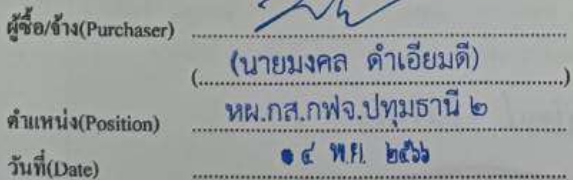 ผู้ซื้อ/จ้าง(Purchaser)
(นายมงคล ดำเอียมดี)
ตำแหน่ง(Position) หผ.กส.กฟจ.ปทุมธานี ๒
วันที่(Date) ๑๔ พ.ย. ๒๕๖๖